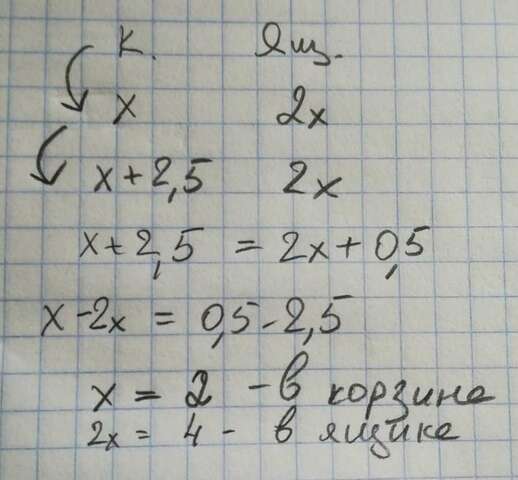 К. Ящ.
x 2x
x+2,5 2x
x+2,5 = 2x+0,5
x-2x = 0,5-2,5
x = 2 - в корзине
2x = 4 - в ящике